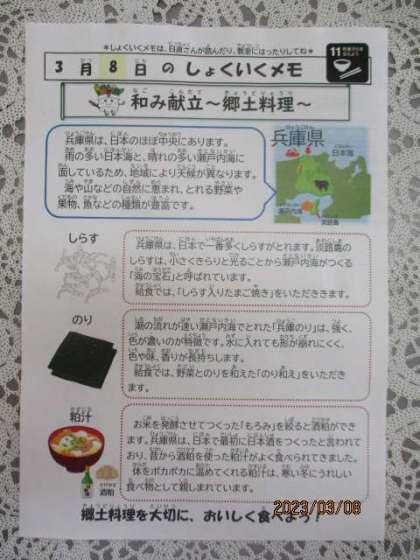 ＊しょくいくメモは、日直さんが読んだり、教室にはったりしてね＊
3月8日のしょくいくメモ
11
和み献立～郷土料理～
兵庫県は、日本のほぼ中央にあります。
雨の多い日本海と、晴れの多い瀬戸内海に
面しているため、地域により天候が異なります。
海や山などの自然に恵まれ、とれる野菜や
果物、魚などの種類が豊富です。
兵庫県
日本海
瀬戸内海
淡路島
しらす
兵庫県は、日本で一番多くしらすがとれます。淡路島の
しらすは、小さくきらりと光ることから瀬戸内海がつくる
「海の宝石」と呼ばれています。
給食では、「しらす入りたまご焼き」をいただきます。
のり
潮の流れが速い瀬戸内海でとれた「兵庫のり」は、強く、
色が濃いのが特徴です。水に入れても形が崩れにくく、
色や味、香りが長持ちします。
給食では、野菜とのりを和えた「のり和え」をいただき
ます。
粕汁
お米を発酵させてつくった「もろみ」を絞ると酒粕ができ
ます。兵庫県は、日本で最初に日本酒をつくったと言われて
おり、昔から酒粕を使った粕汁がよく食べられてきました。
体をポカポカに温めてくれる粕汁は、寒い冬にうれしい
食べ物として親しまれています。
酒粕
郷土料理を大切に、おいしく食べよう！
2023/03/08